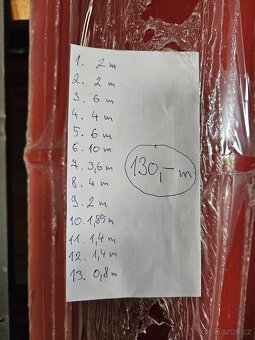 1. 2 m
2. 2 m
3. 6 m
4. 4 m
5. 6 m
6. 10 m
7. 3,6 m
8. 4 m
9. 2 m
10. 1,89 m
11. 1,4 m
12. 1,4 m
13. 0,8 m
130,- m